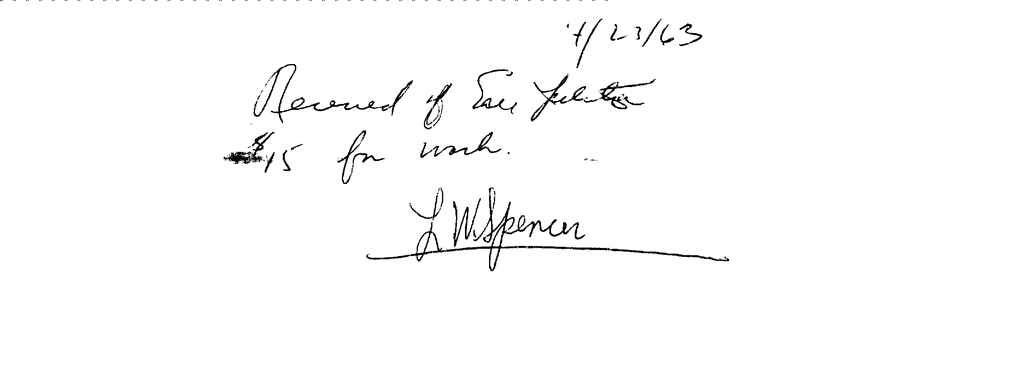 4/23/63
Received of
$15 for work.
L W Spencer